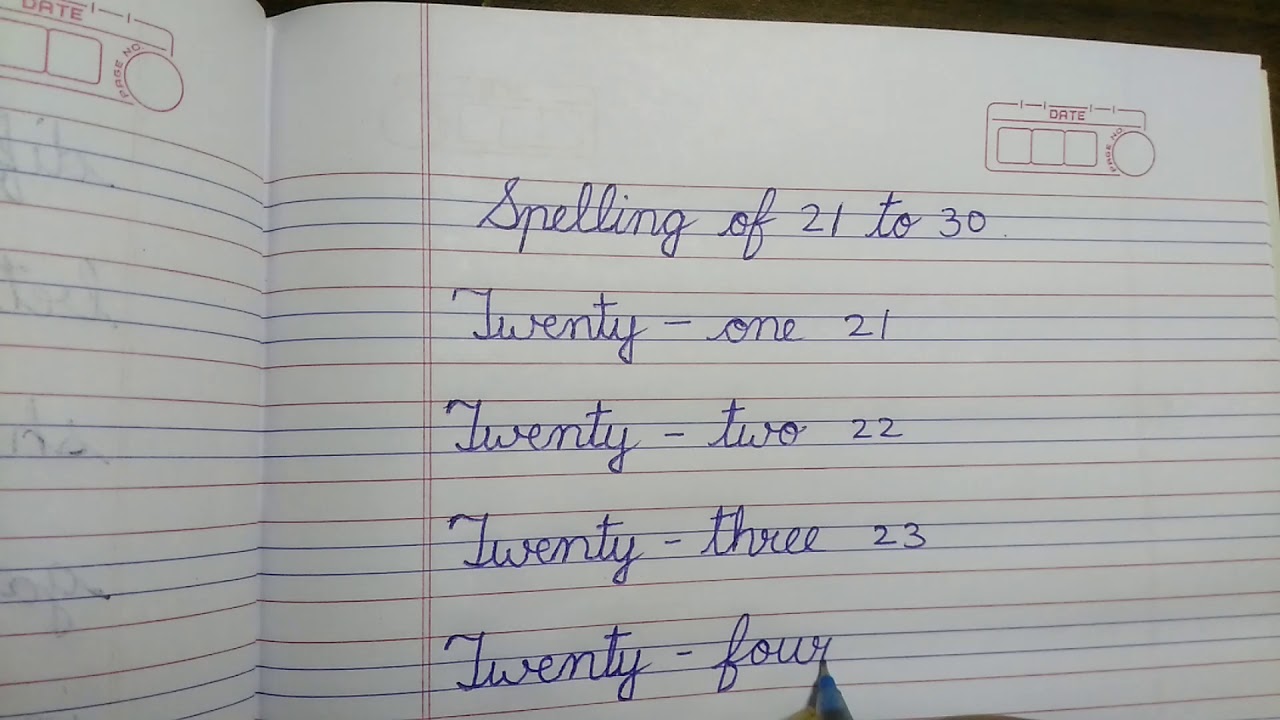 DATE
PAGE NO.
DATE
PAGE NO.
Spelling of 21 to 30.
Twenty - one 21
Twenty - two 22
Twenty - three 23
Twenty - four